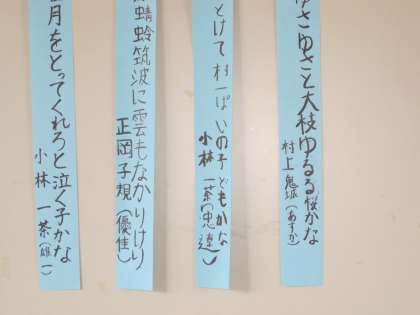 ゆさゆさと大枝ゆるる桜かな
村上鬼城(あすか)
とけて村一ぱいの子どもかな
小林一茶(忠連)
蜻蛉筑波に雲もなかりけり
正岡子規(優佳)
月をとってくれろと泣く子かな
小林一茶(雄一)